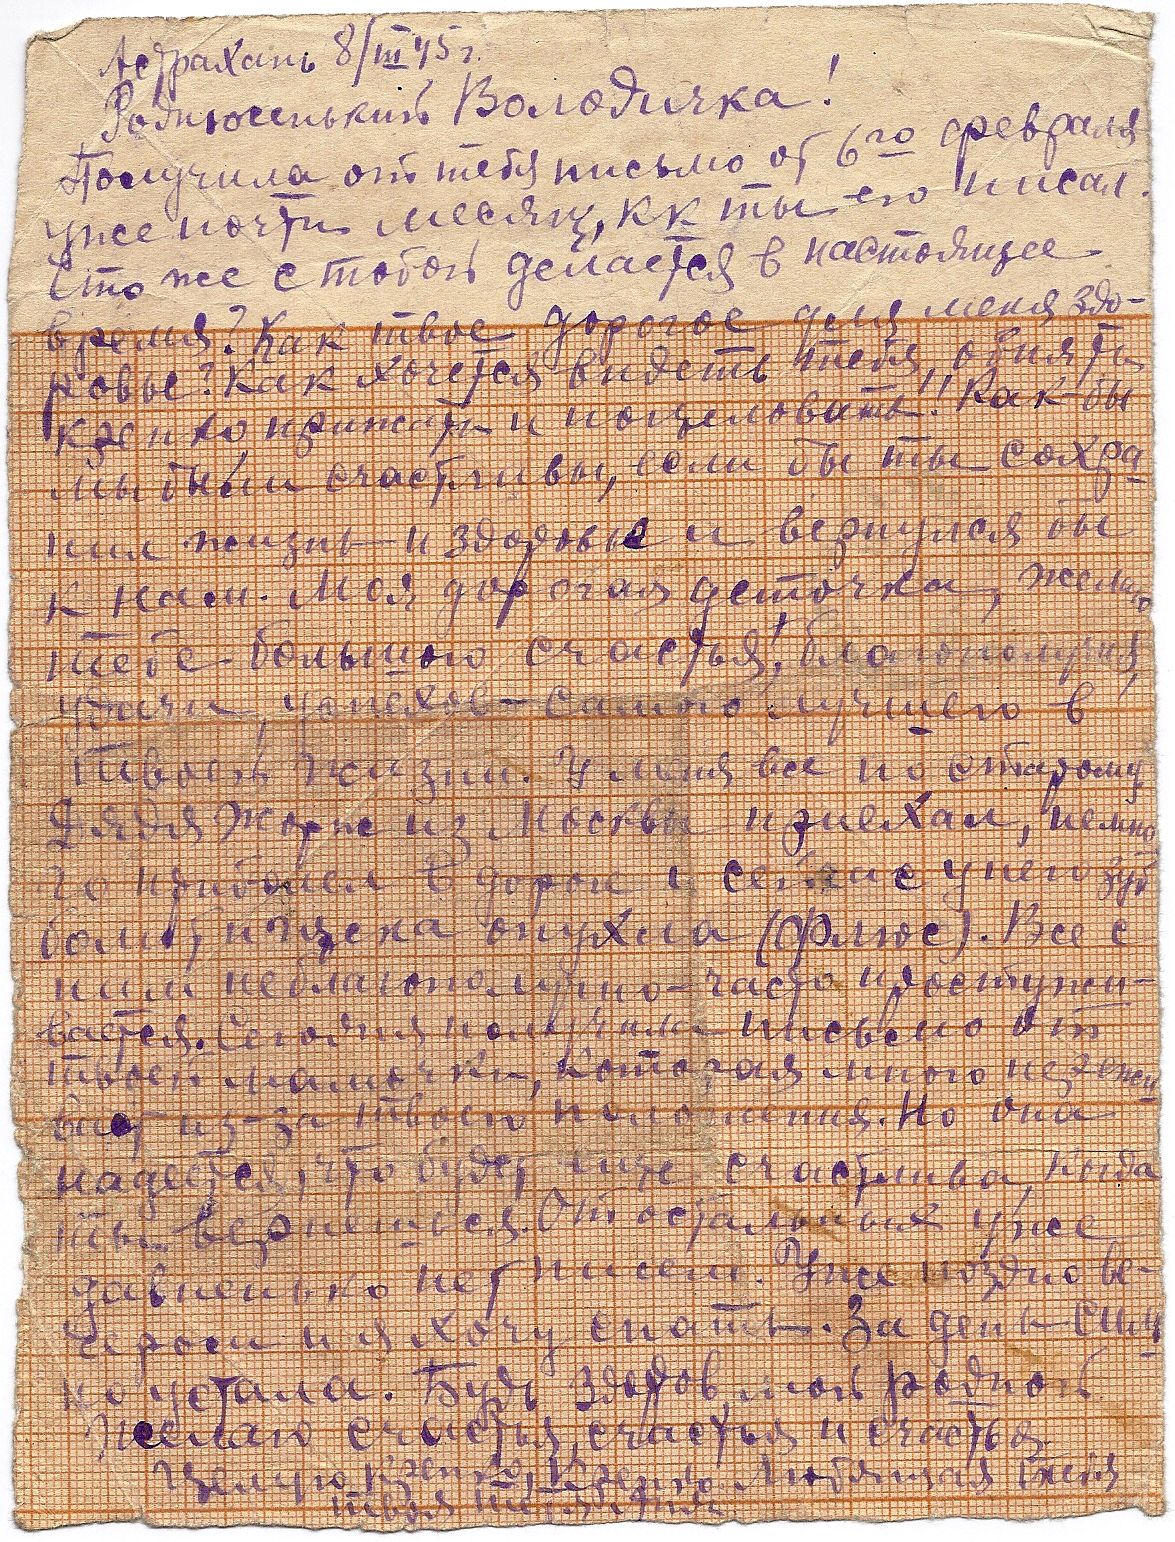 Астрахань 8/III 45 г.
Роднюсенький Володичка!
Получила от тебя письмо от 6го февраля
уже почти месяц, кк ты его писал.
Что же с тобой делается в настоящее
время? Как твое дорогое для меня здо-
ровье? Как хочется видеть тебя, обнять
крепко прижать и поцеловать! Как бы
мы были счастливы, если бы ты сохра
нил жизнь и здоровье и вернулся бы
к нам. Моя дорогая деточка, желаю
тебе большого счастья, благополучия,
удачи, успехов – самого лучшего в
твоей жизни. У меня все по старому
Дядя Жорж из Москвы приехал, немно
го приболел в дороге и сейчас у него зуб
болит и щека опухла (флюс). Все с
ним неблагополучно – часто простужи-
вается. Сегодня получили письмо от
твоей мамочки, которая много пережи
вает из-за твоего положения. Но она
надеется, что будет еще счастлива, когда
ты вернешься. От остальных уже
давненько нет писем. Уже поздно ве-
чером и я хочу спать. За день силь
но устала. Будь здоров, мой родной
Желаю счастья, счастья и счастья
Целую крепко, крепко Любящая тебя
твоя тетя